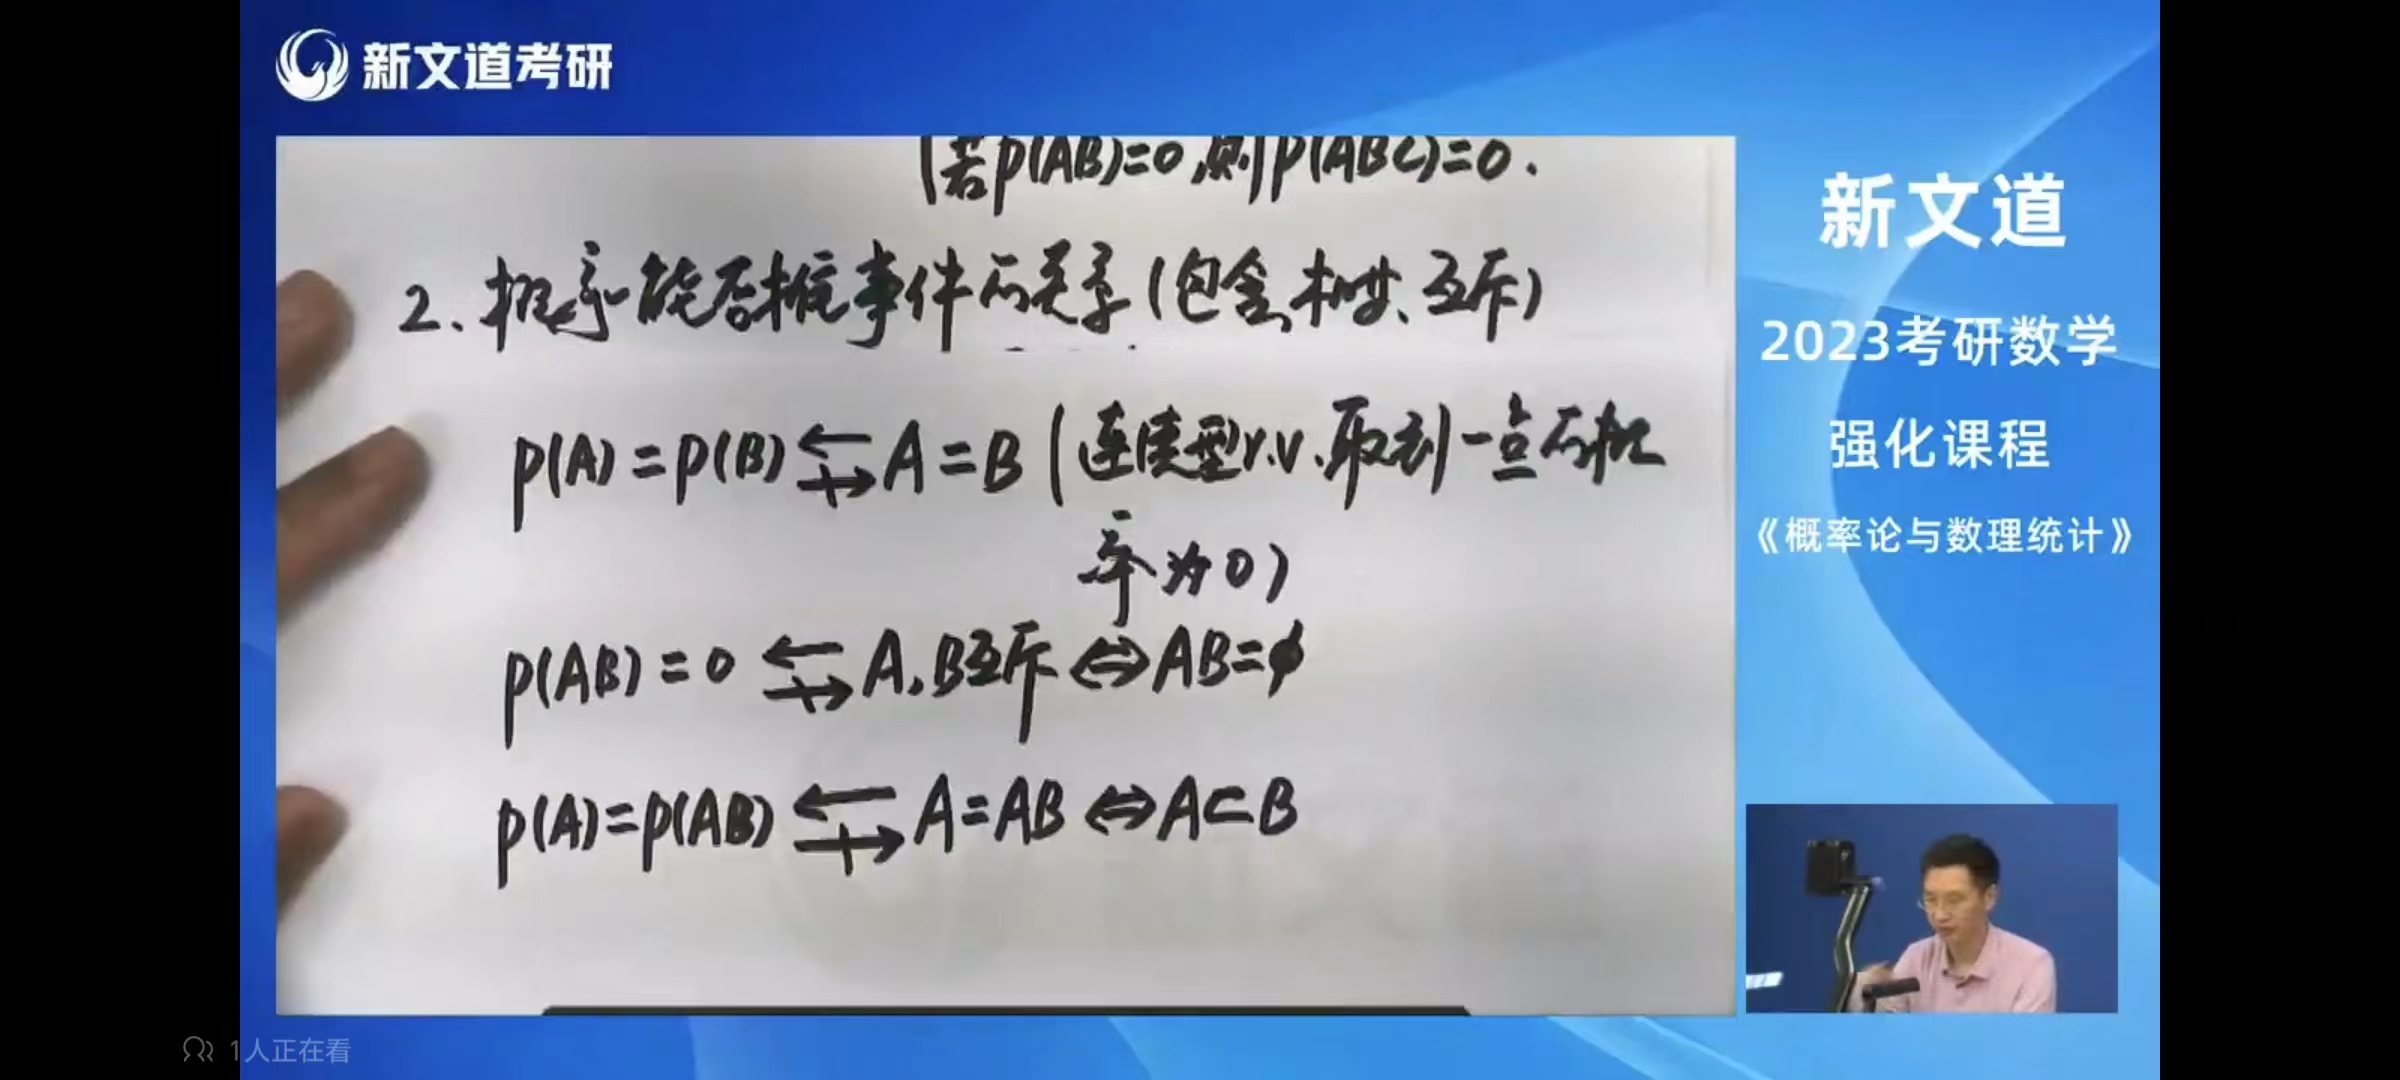 新文道考研
(若P(AB)=0,则P(ABC)=0.
2.概率能否推事件的关系(包含、相等、互斥)
P(A)=P(B) ⇄ A=B (连续型r.v.取到一点的概
率为0)
P(AB)=0 ⇄ A,B互斥 ⇔ AB=φ
P(A)=P(AB) ⇄ A=AB ⇔ A⊂B
新文道
2023考研数学
强化课程
《概率论与数理统计》
1人正在看